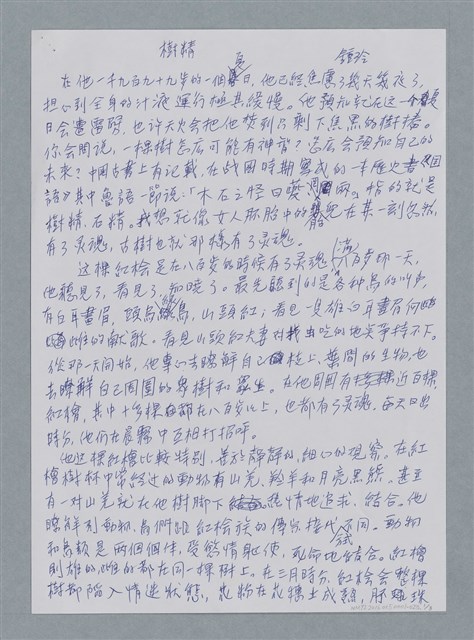 樹精
鍾玲
在他一千九百九十九歲的一個夏日，他已經焦慮了幾天幾夜了，
担心到全身的汁液運行極其緩慢。他預知就在這一個夏
日會遭雷劈，也許天火會把他焚到只剩下焦黑的樹樁。
你會問說，一棵樹怎麼可能有神智？怎麼會預知自己的
未來？中國古書上有記載，在戰國時期寫成的一本歷史書《國
語》其中魯語一節說：「木石之怪曰夔、罔兩」，指的就是
樹精、石精。我想就像女人胚胎中的嬰兒在某一刻忽然
有了灵魂，古樹也就那樣有了灵魂。
這棵紅桧是在八百歲的時候有了灵魂。滿八百歲那一天，
他聽見了，看見了，知曉了。最先聽到的是各種鳥的叫声，
有白耳畫眉、綠鳥、山頭紅；看見一隻雄白耳畫眉向
雌的獻歌。看見山頭紅夫妻对找虫吃的地点爭持不下。
從那一天開始，他專心去瞭解自己枝上、葉間的生物，也
去瞭解自己周圍的眾樹和眾生。在他周圍有近百棵
紅檜，其中十多棵都在八百歲以上，也都有了灵魂，每天日出
時分，他們在晨霧中互相打招呼。
他這棵紅檜比較特別，善於靜靜的、細心的观察。在紅
檜樹林中常經过的動物有山羌、羚羊和月亮黑熊。甚至
有一对山羌就在他樹脚下忘情地追求、結合。他
瞭解到動物、鳥們跟紅桧族的傳宗接代方式不同。動物
和鳥類是兩個個体，受慾情驅使，死命地結合。紅檜
則雄的、雌的都在同一棵樹上。在三月時分，紅桧会整棵
樹都陷入情迷狀態，花粉在花蕊上成熟，胚珠